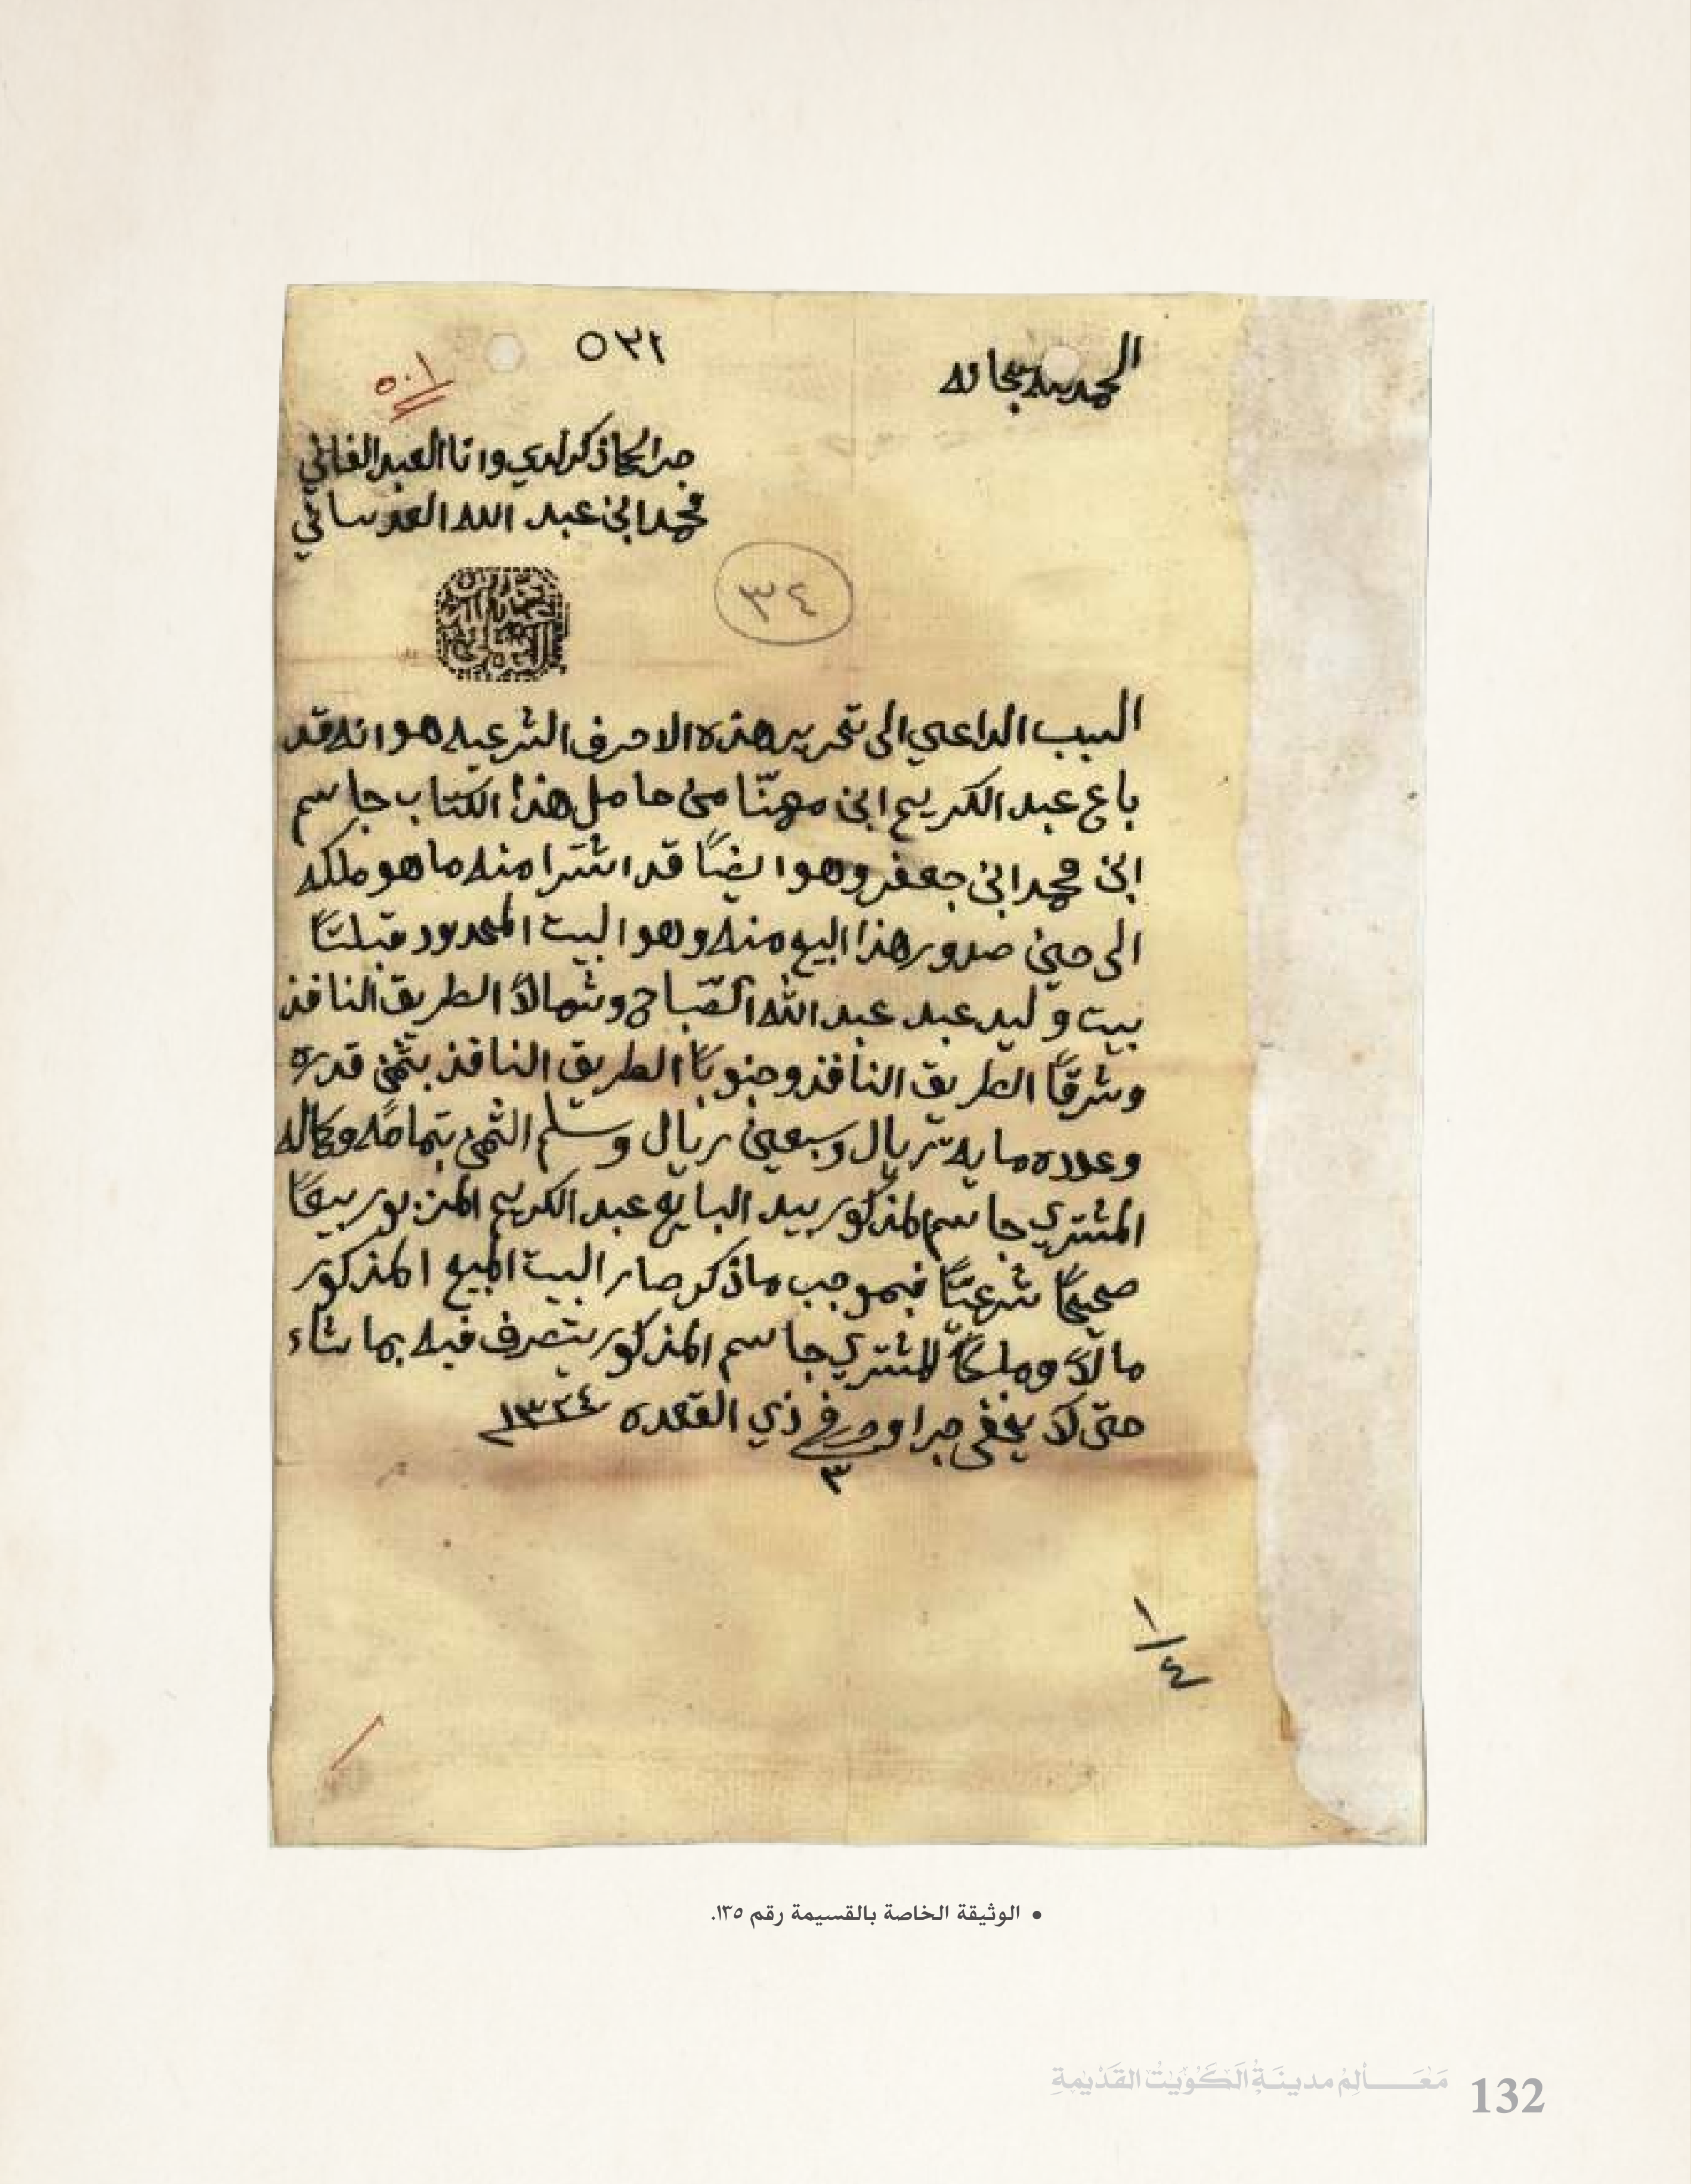 الحمد لله سبحانه
٥٣٢
٥٠١
جرا كما ذكر لدي وانا العبد الفاني
محمد ابن عبد الله العدساني
٣٤
السبب الداعي الى تحرير هذه الاحرف الشرعيه هو انه قد
باع عبد الكريم ابن مهنّا من حامل هذا الكتاب جاسم
ابن محمد ابن جعفر وهو ايضًا قد اشترا منه ما هو ملكه
الى حين صدور هذا البيع منه وهو البيت المحدود قبلتًا
بيت وليد عبد عبد الله الصّباح وشمالًا الطريق النافذ
وشرقًا الطريق النافذ وجنوبًا الطريق النافذ بثمن قدره
وعدده مايه ريال وسبعين ريال وسلم الثمن بتمامه وكماله
المشتري جاسم المذكور بيد البايع عبد الكريم المزبور بيعًا
صحيحًا شرعيًا فبموجب ما ذكر صار البيت المبيع المذكور
مالًا وملكًا للمشتري جاسم المذكور يتصرف فيه بما شاء
حتى لا يخفى جرا وحرر في ٣ ذي القعده ١٣٢٤
١/٤
• الوثيقة الخاصة بالقسيمة رقم ١٣٥.
مَعَالِمُ مدينَةِ الكُوَيْتْ القَدْيْمَةِ 132